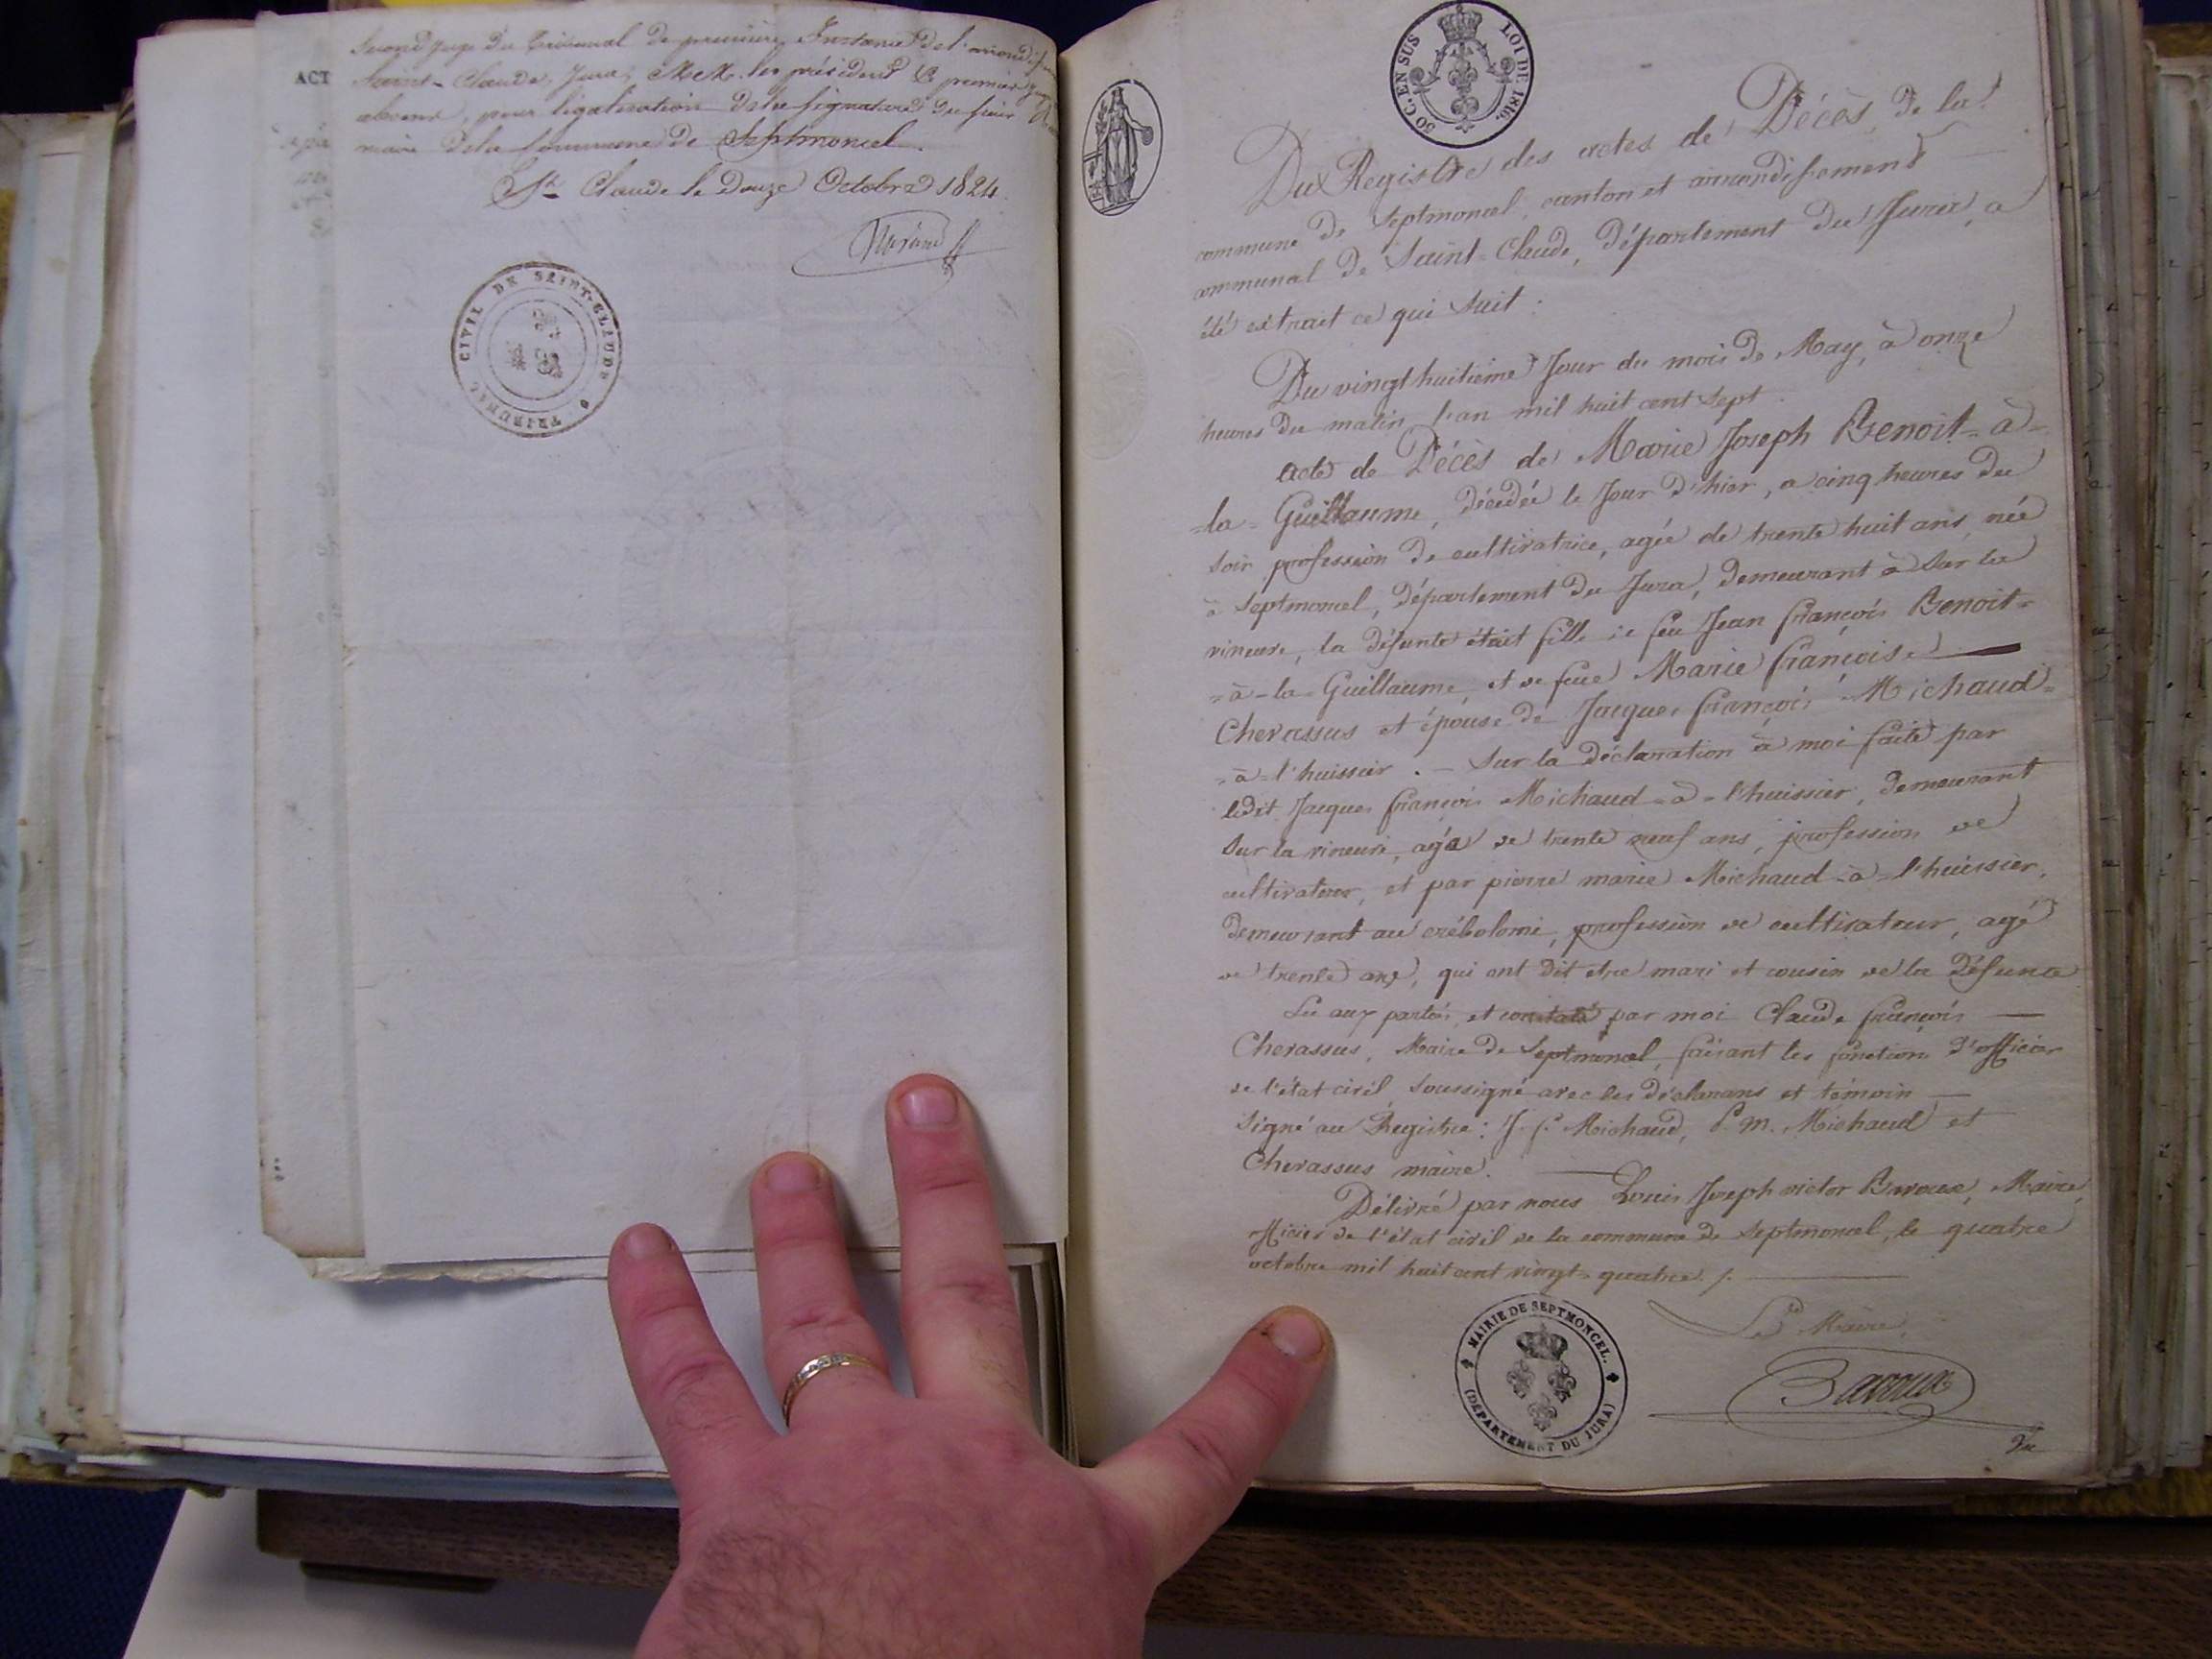 second juge du Tribunal de première Instance de l'arrondissem
ACT
Saint-Claude, Jura, MM. les président & premier juge
absens, pour légalisation de la signature du sieur
maire de la Commune de Septmoncel.
St Claude le Douze Octobre 1824
TRIBUNAL CIVIL DE SAINT-CLAUDE
50 C. EN SUS LOI DE 1816.
Du Registre des actes de Décès, de la
commune de Septmoncel, canton et arrondissement
communal de Saint-Claude, Département du Jura, a
été extrait ce qui suit :
Du vingt huitieme Jour du mois de May, à onze
heures du matin, l'an mil huit cent sept.
acte de Décès de Marie Joseph Benoit-à-
-la-Guillaume, décédée le Jour d'hier, a cinq heures du
soir, profession de cultivatrice, agée de trente huit ans, née
à Septmoncel, département du Jura, demeurant à Sur la
vineure, la défunte était fille de feu Jean françois Benoit-
-à-la-Guillaume, et de feue Marie françoise
Chevassus et épouse de Jacques françois Michaud-
-à-l'huissier. - Sur la déclaration à moi faite par
ledit Jacques françois Michaud-à-l'huissier, demeurant
Sur la vineure, agé de trente neuf ans, profession de
cultivateur, et par pierre marie Michaud-à-l'huissier,
demeurant au crébolomé, profession de cultivateur, agé
de trente ans, qui ont dit etre mari et cousin de la défunte
Lu aux parties, et constaté par moi Claude françois
Chevassus, Maire de Septmoncel, faisant les fonctions d'officier
de l'état civil, Soussigné avec les déclarans et témoin
Signé au Registre : J. f. Michaud, P. M. Michaud et
Chevassus maire.
Délivré par nous Louis Joseph victor Bavoux, Maire,
officier de l'état civil de la commune de Septmoncel, le quatre
octobre mil huit cent vingt-quatre ./.
Le Maire,
MAIRIE DE SEPTMONCEL.
(DÉPARTEMENT DU JURA)
Bavoux
Vu